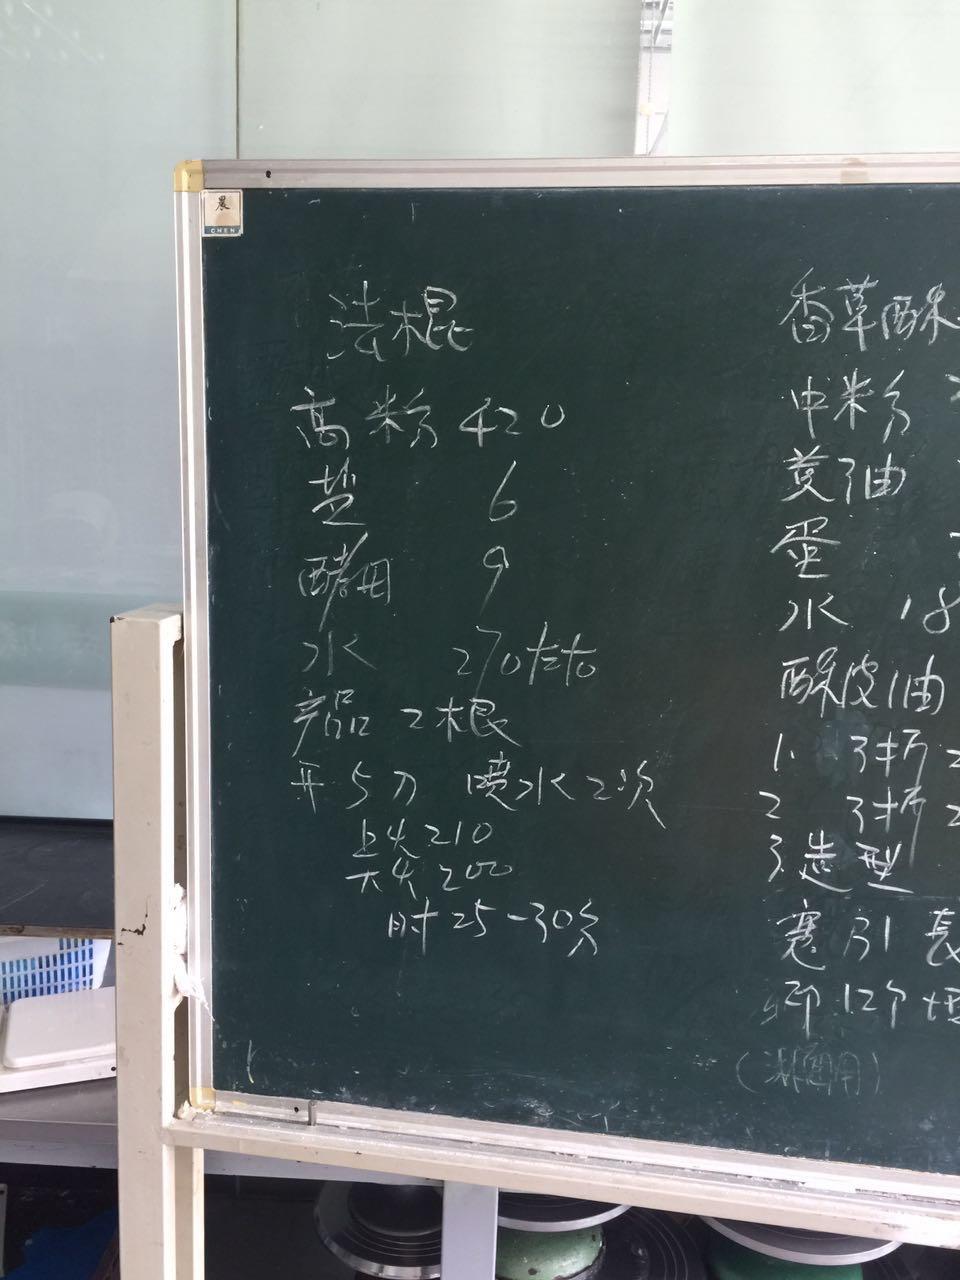 晨
CHEN
法棍
高粉 420
盐 6
酵母 9
水 270左右
产品 2根
开5刀 喷水2次
上火210
下火200
时25-30分
香草酥
中粉
黄油
蛋
水 18
酥皮油
1. 3折2
2 3折2
3.造型
长
12个